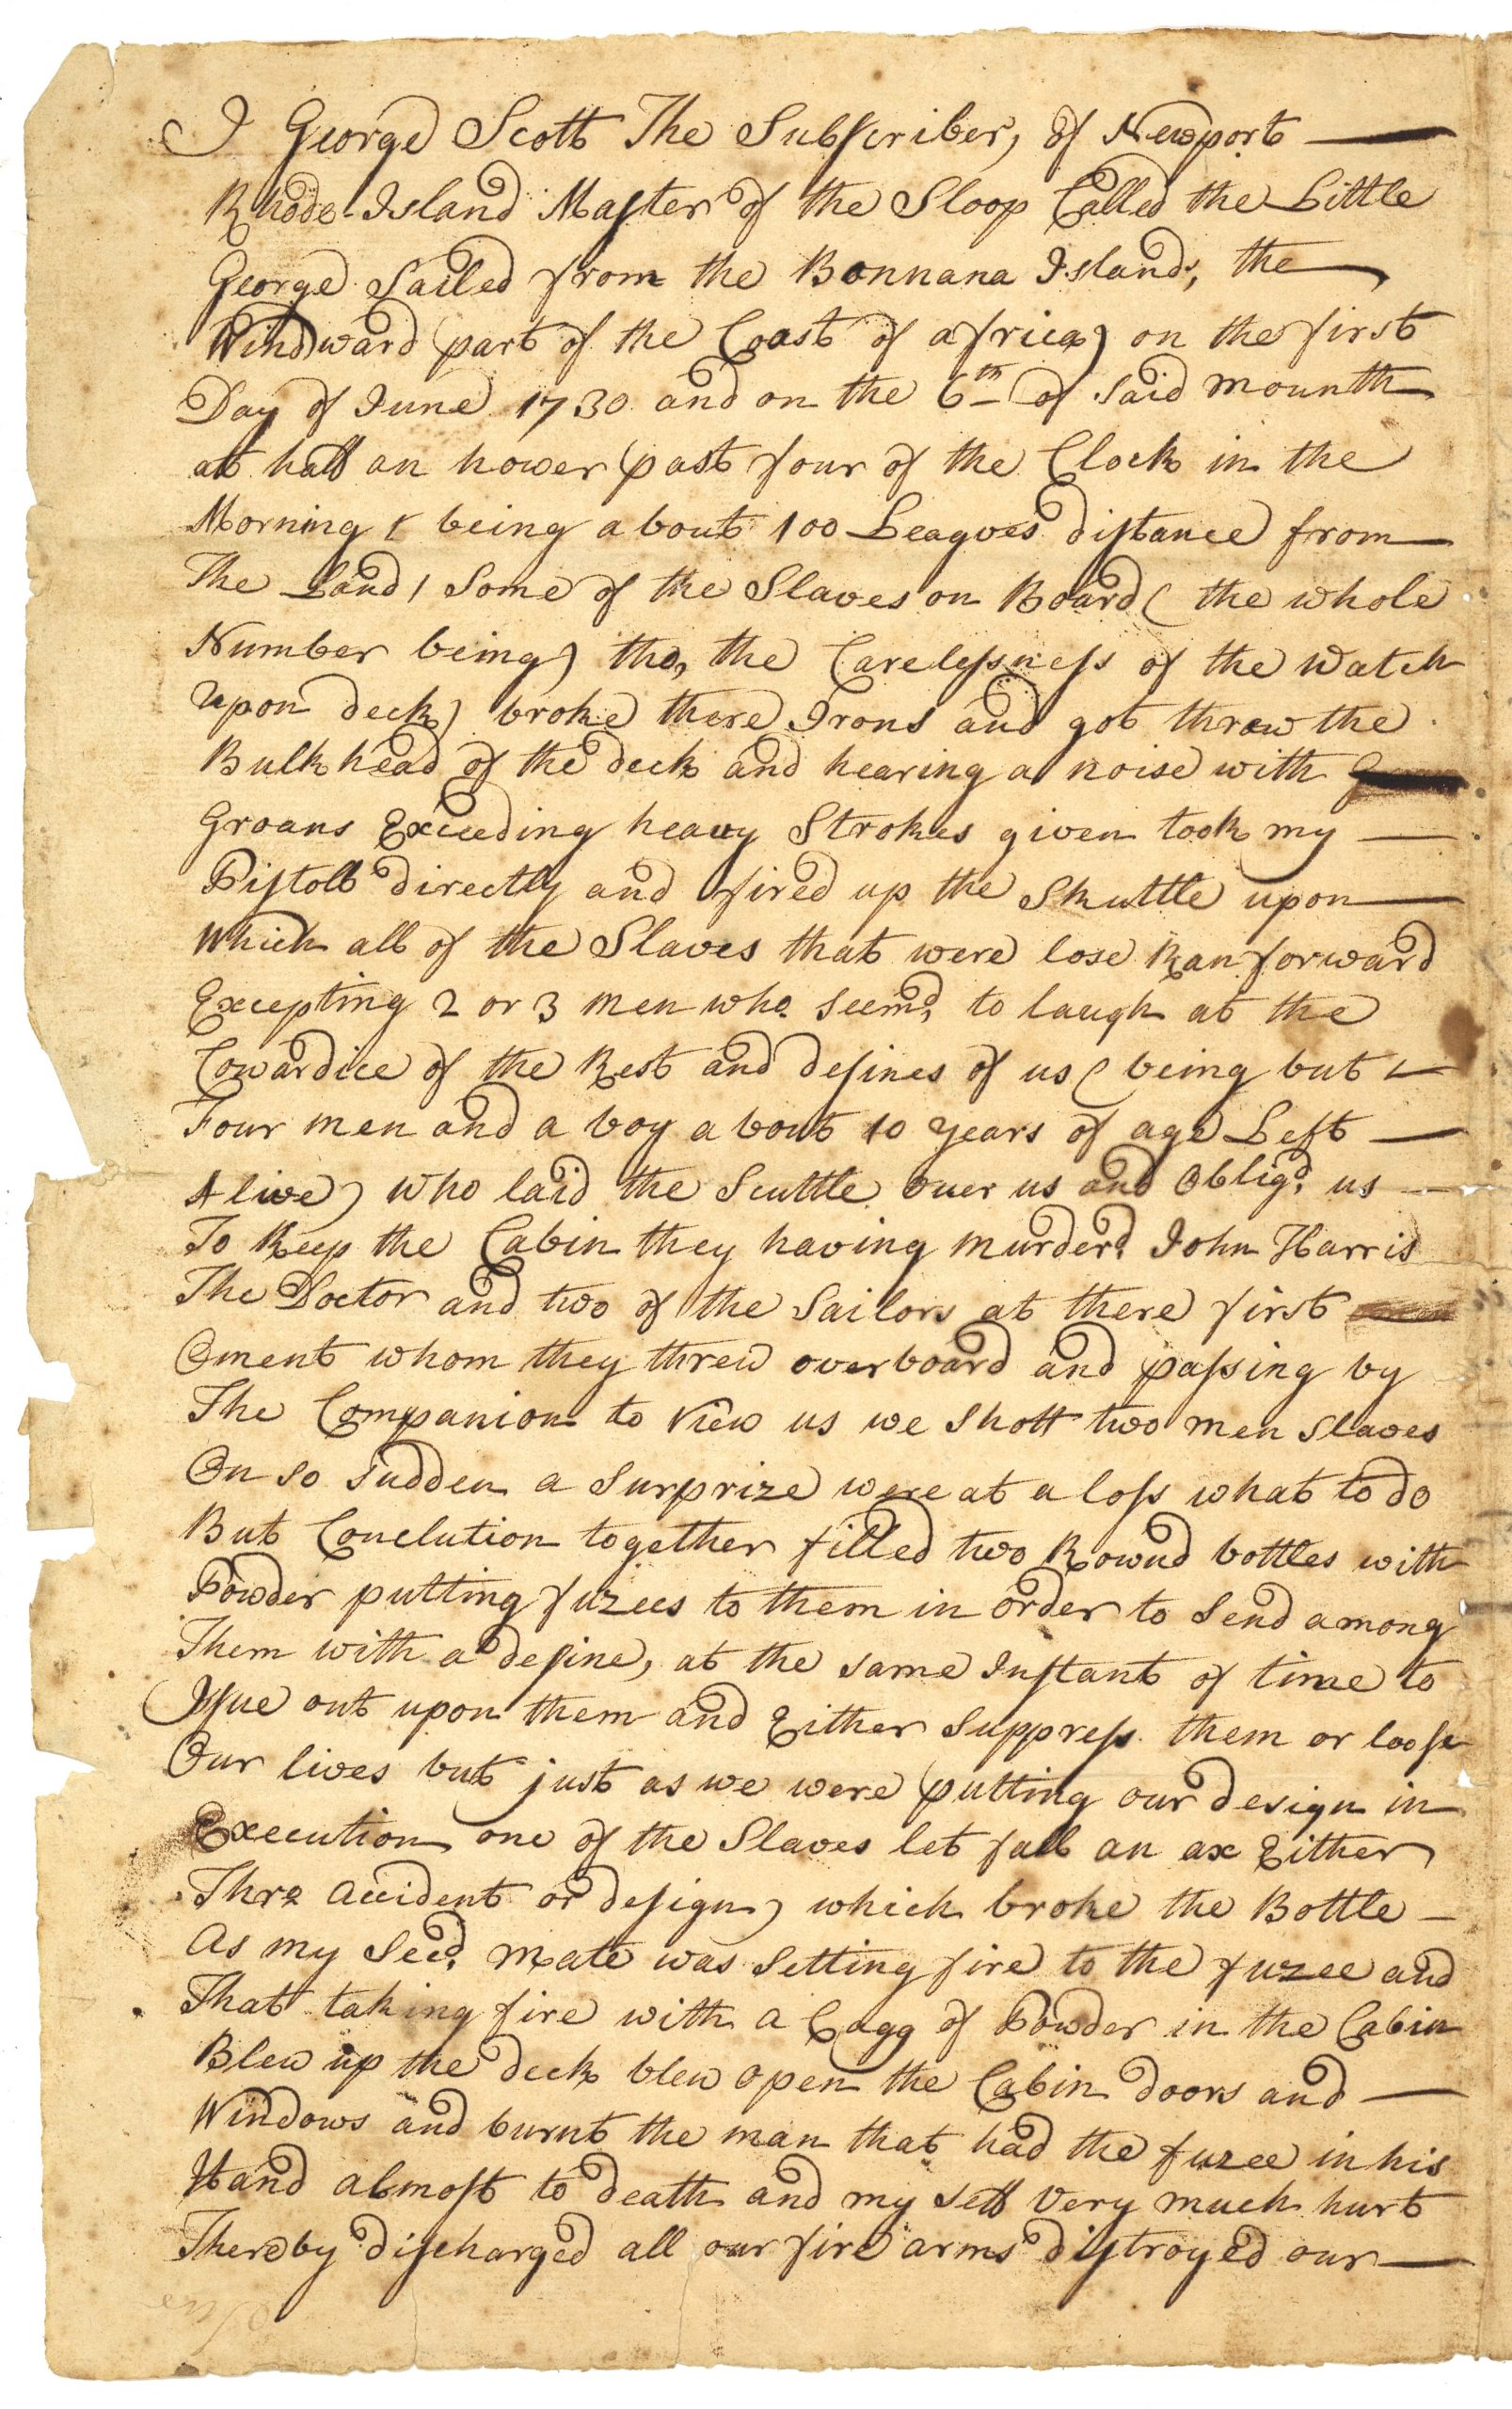 I George Scott The Subſcriber, of Newport
Rhode Island Maſter of the Sloop Called the Little
George Sailed from the Bonnana Islands, the
Windward part of the Coast of africa) on the first
Day of June 1730 and on the 6th of said mounth
at half an hower past four of the Clock in the
Morning ( being about 100 Leagves diſtance from
The Land ) Some of the Slaves on Board ( the whole
Number being) thO, the Careleſsneſs of the watch
Upon deck) broke there Irons and got threw the
Bulkhead of the deck and hearing a noise with
Groans Exceeding heavy Strokes given took my
Piſtoll directly and fired up the Skuttle upon
Which all of the Slaves that were lose Ran forward
Excepting 2 or 3 men who seemd, to laugh at the
Cowardice of the Rest and deſines of us ( being but
Four men and a boy about 10 years of age Left
Alive) who laid the Scuttle over us and Obligd, us
To Keep the Cabin they having murderd, John Harris
The Doctor and two of the Sailors at there first
Oment whom they threw overboard and paſsing by
The Companion to View us we shott two men slaves
On so sudden a surprize were at a loſs what to do
But Conclution together filled two Rownd bottles with
Powder putting fuzees to them in order to send among
Them with a deſine, at the same Inſtant of time to
Iſsue out upon them and Either suppreſs them or looſe
Our lives but just as we were putting our design in
Execution one of the Slaves let fall an ax Either
Thro accident or deſign) which broke the Bottle
As my Secd, mate was setting fire to the fuzee and
That taking fire with a Cagg of Powder in the Cabin
Blew up the deck blew open the Cabin doors and
Windows and burnt the man that had the fuzee in his
Hand almoſt to death and my self very much hurt
Thereby diſcharged all our fire arms diſtroyed our